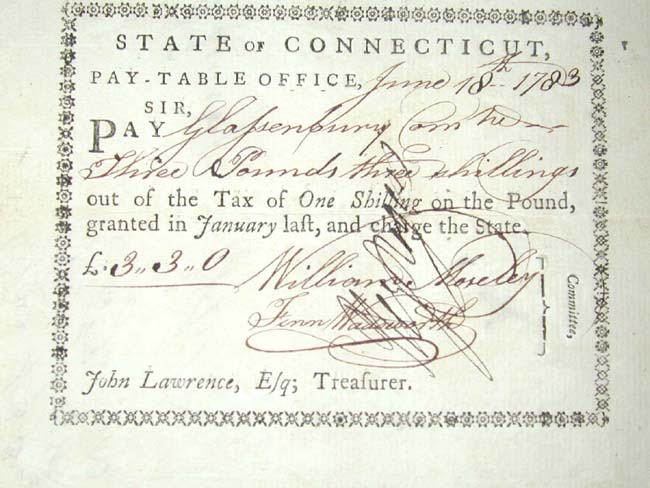 STATE OF CONNECTICUT,
PAY-TABLE OFFICE, June 18th 1783
SIR,
PAY Glassenbury Comtee
Three Pounds three shillings
out of the Tax of One Shilling on the Pound,
granted in January laſt, and charge the State.
£. 3,, 3,, 0 William Moseley
Fenn Wadsworth
Committee,
John Lawrence, Eſq; Treaſurer.